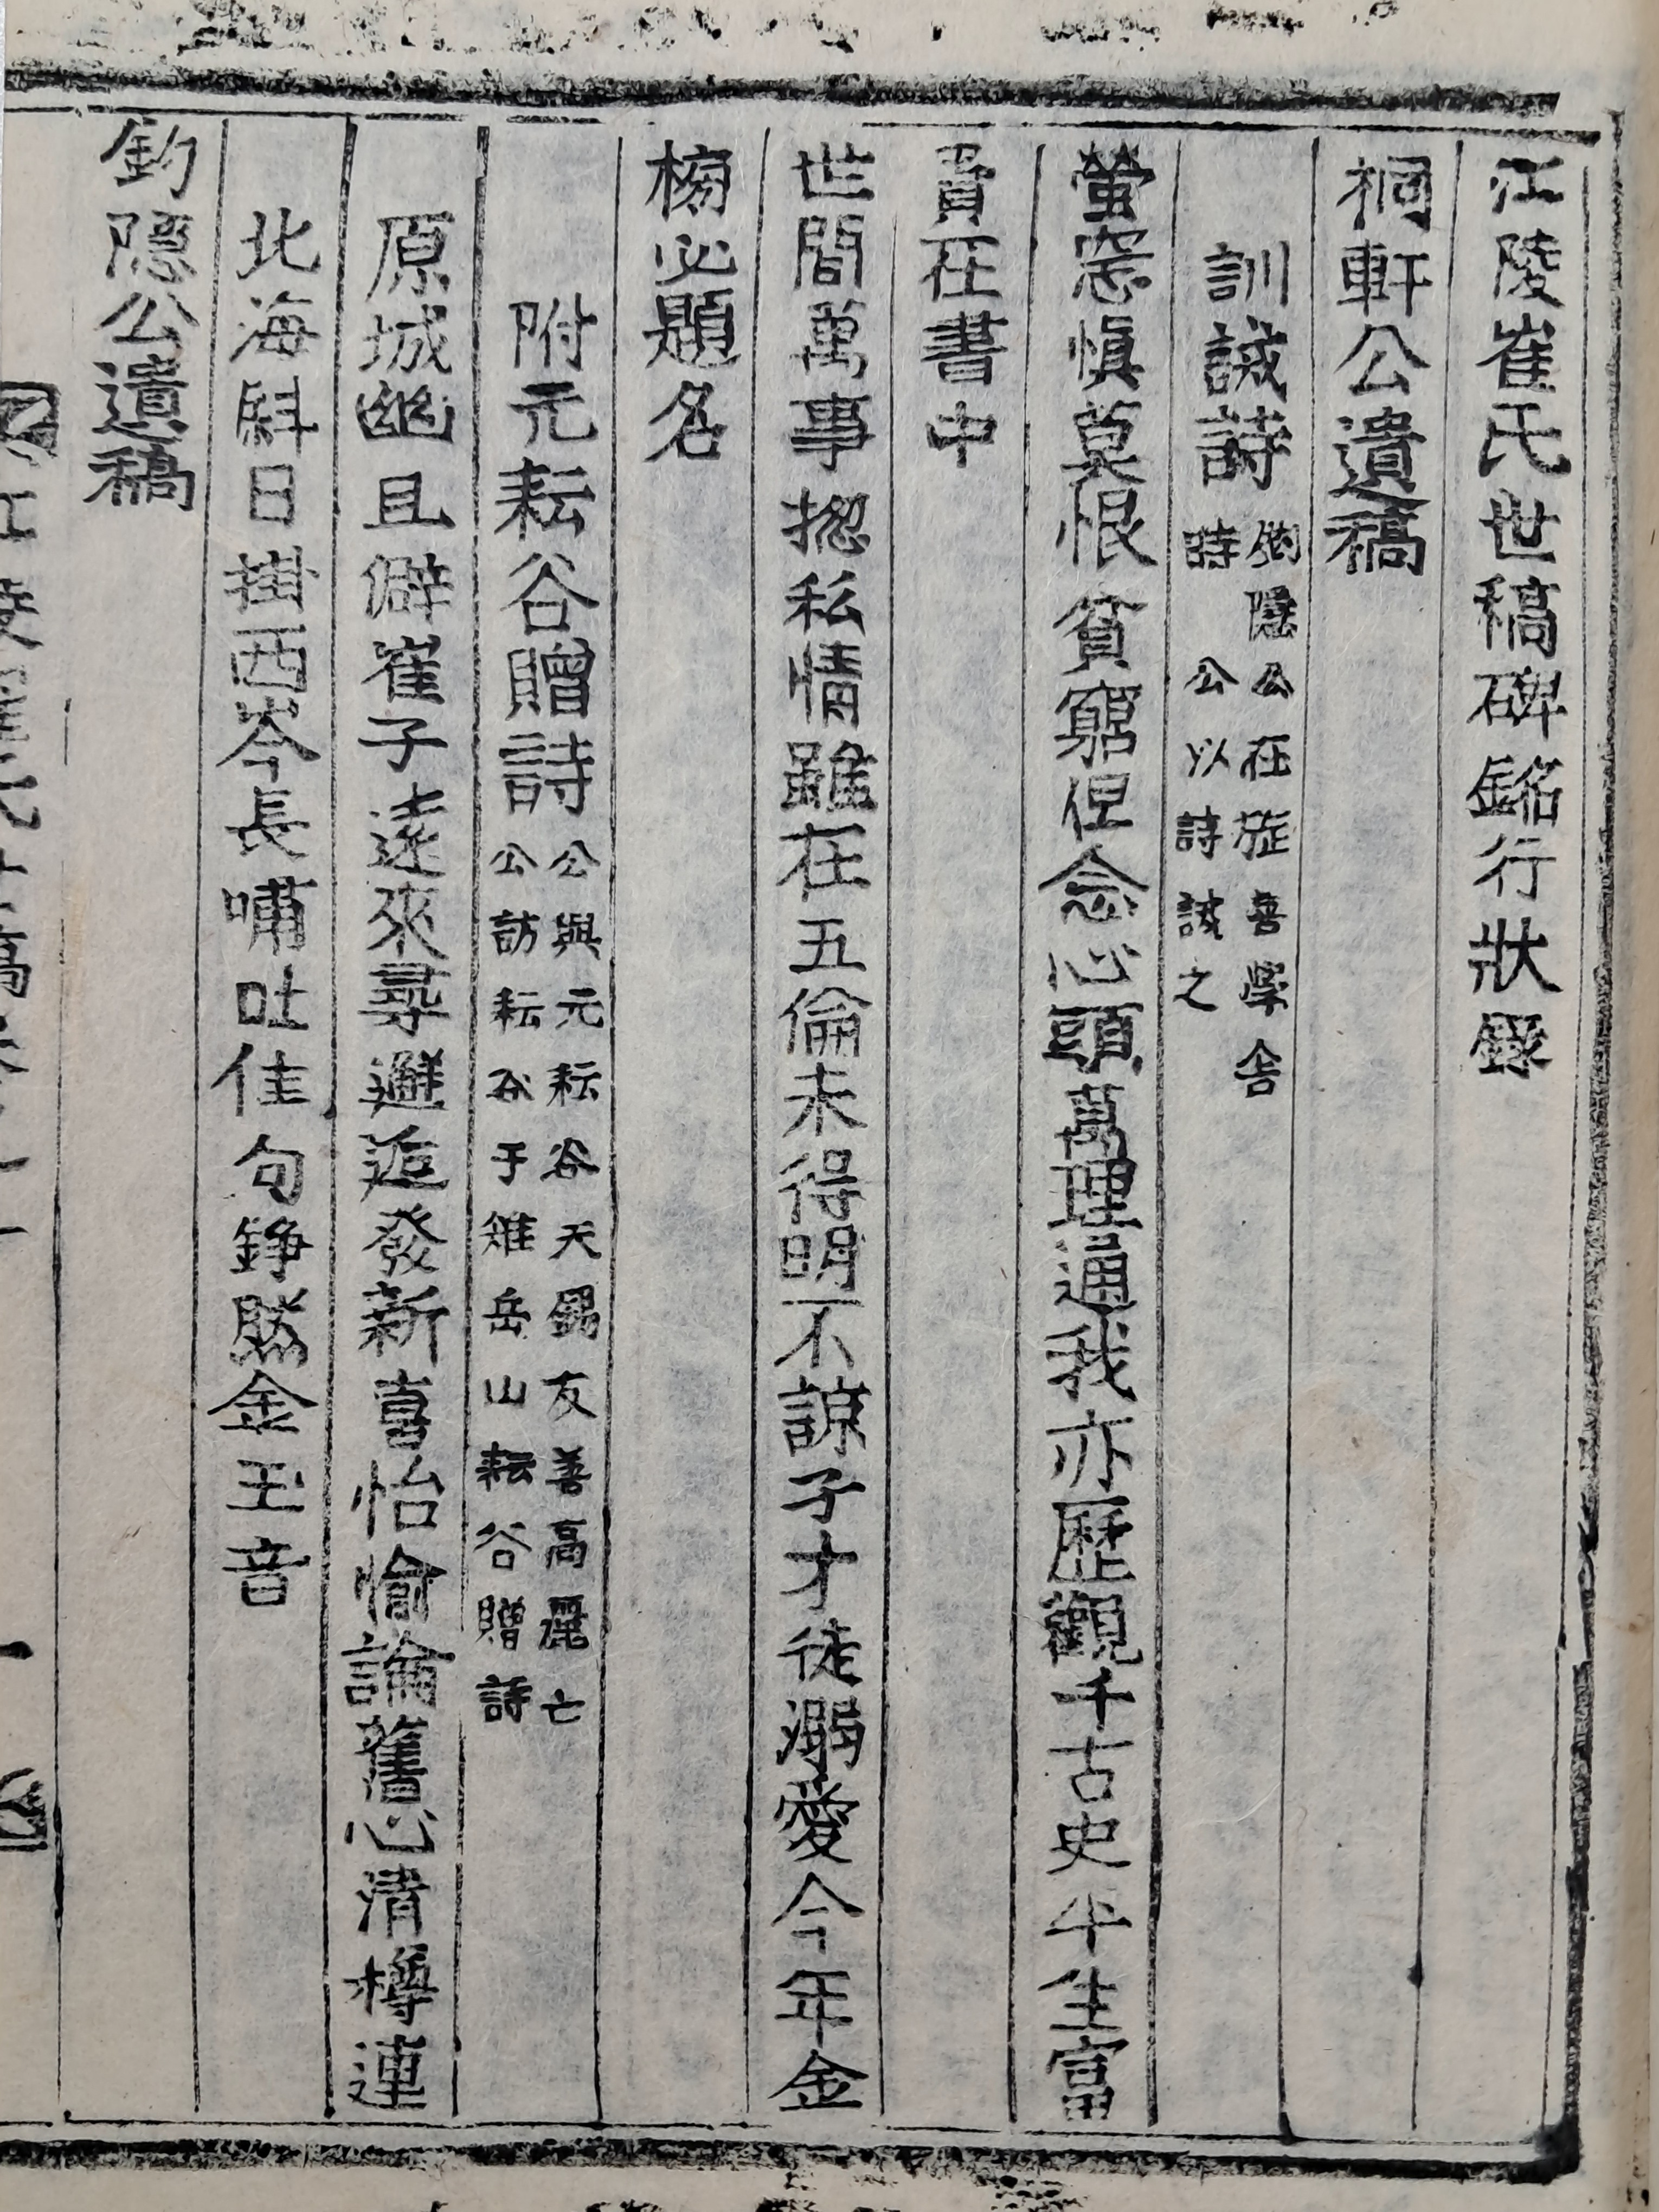 江陵崔氏世稿碑銘行狀錄
桐軒公遺稿
訓誡詩 釣隱公在旋善學舍
時公以詩誡之
螢窓愼莫恨貧窮但念心頭萬理通我亦歷觀千古史半生富
貴在書中
世間萬事揔私情雖在五倫未得明不諒子才徒溺愛今年金
榜必題名
附元耘谷贈詩 公與元耘谷天錫友善高麗亡
公訪耘谷于雉岳山耘谷贈詩
原城幽且僻崔子遠來尋邂逅發新喜怡愉論舊心清樽連
北海斟日掛西岑長嘯吐佳句錚勝金玉音
釣隱公遺稿